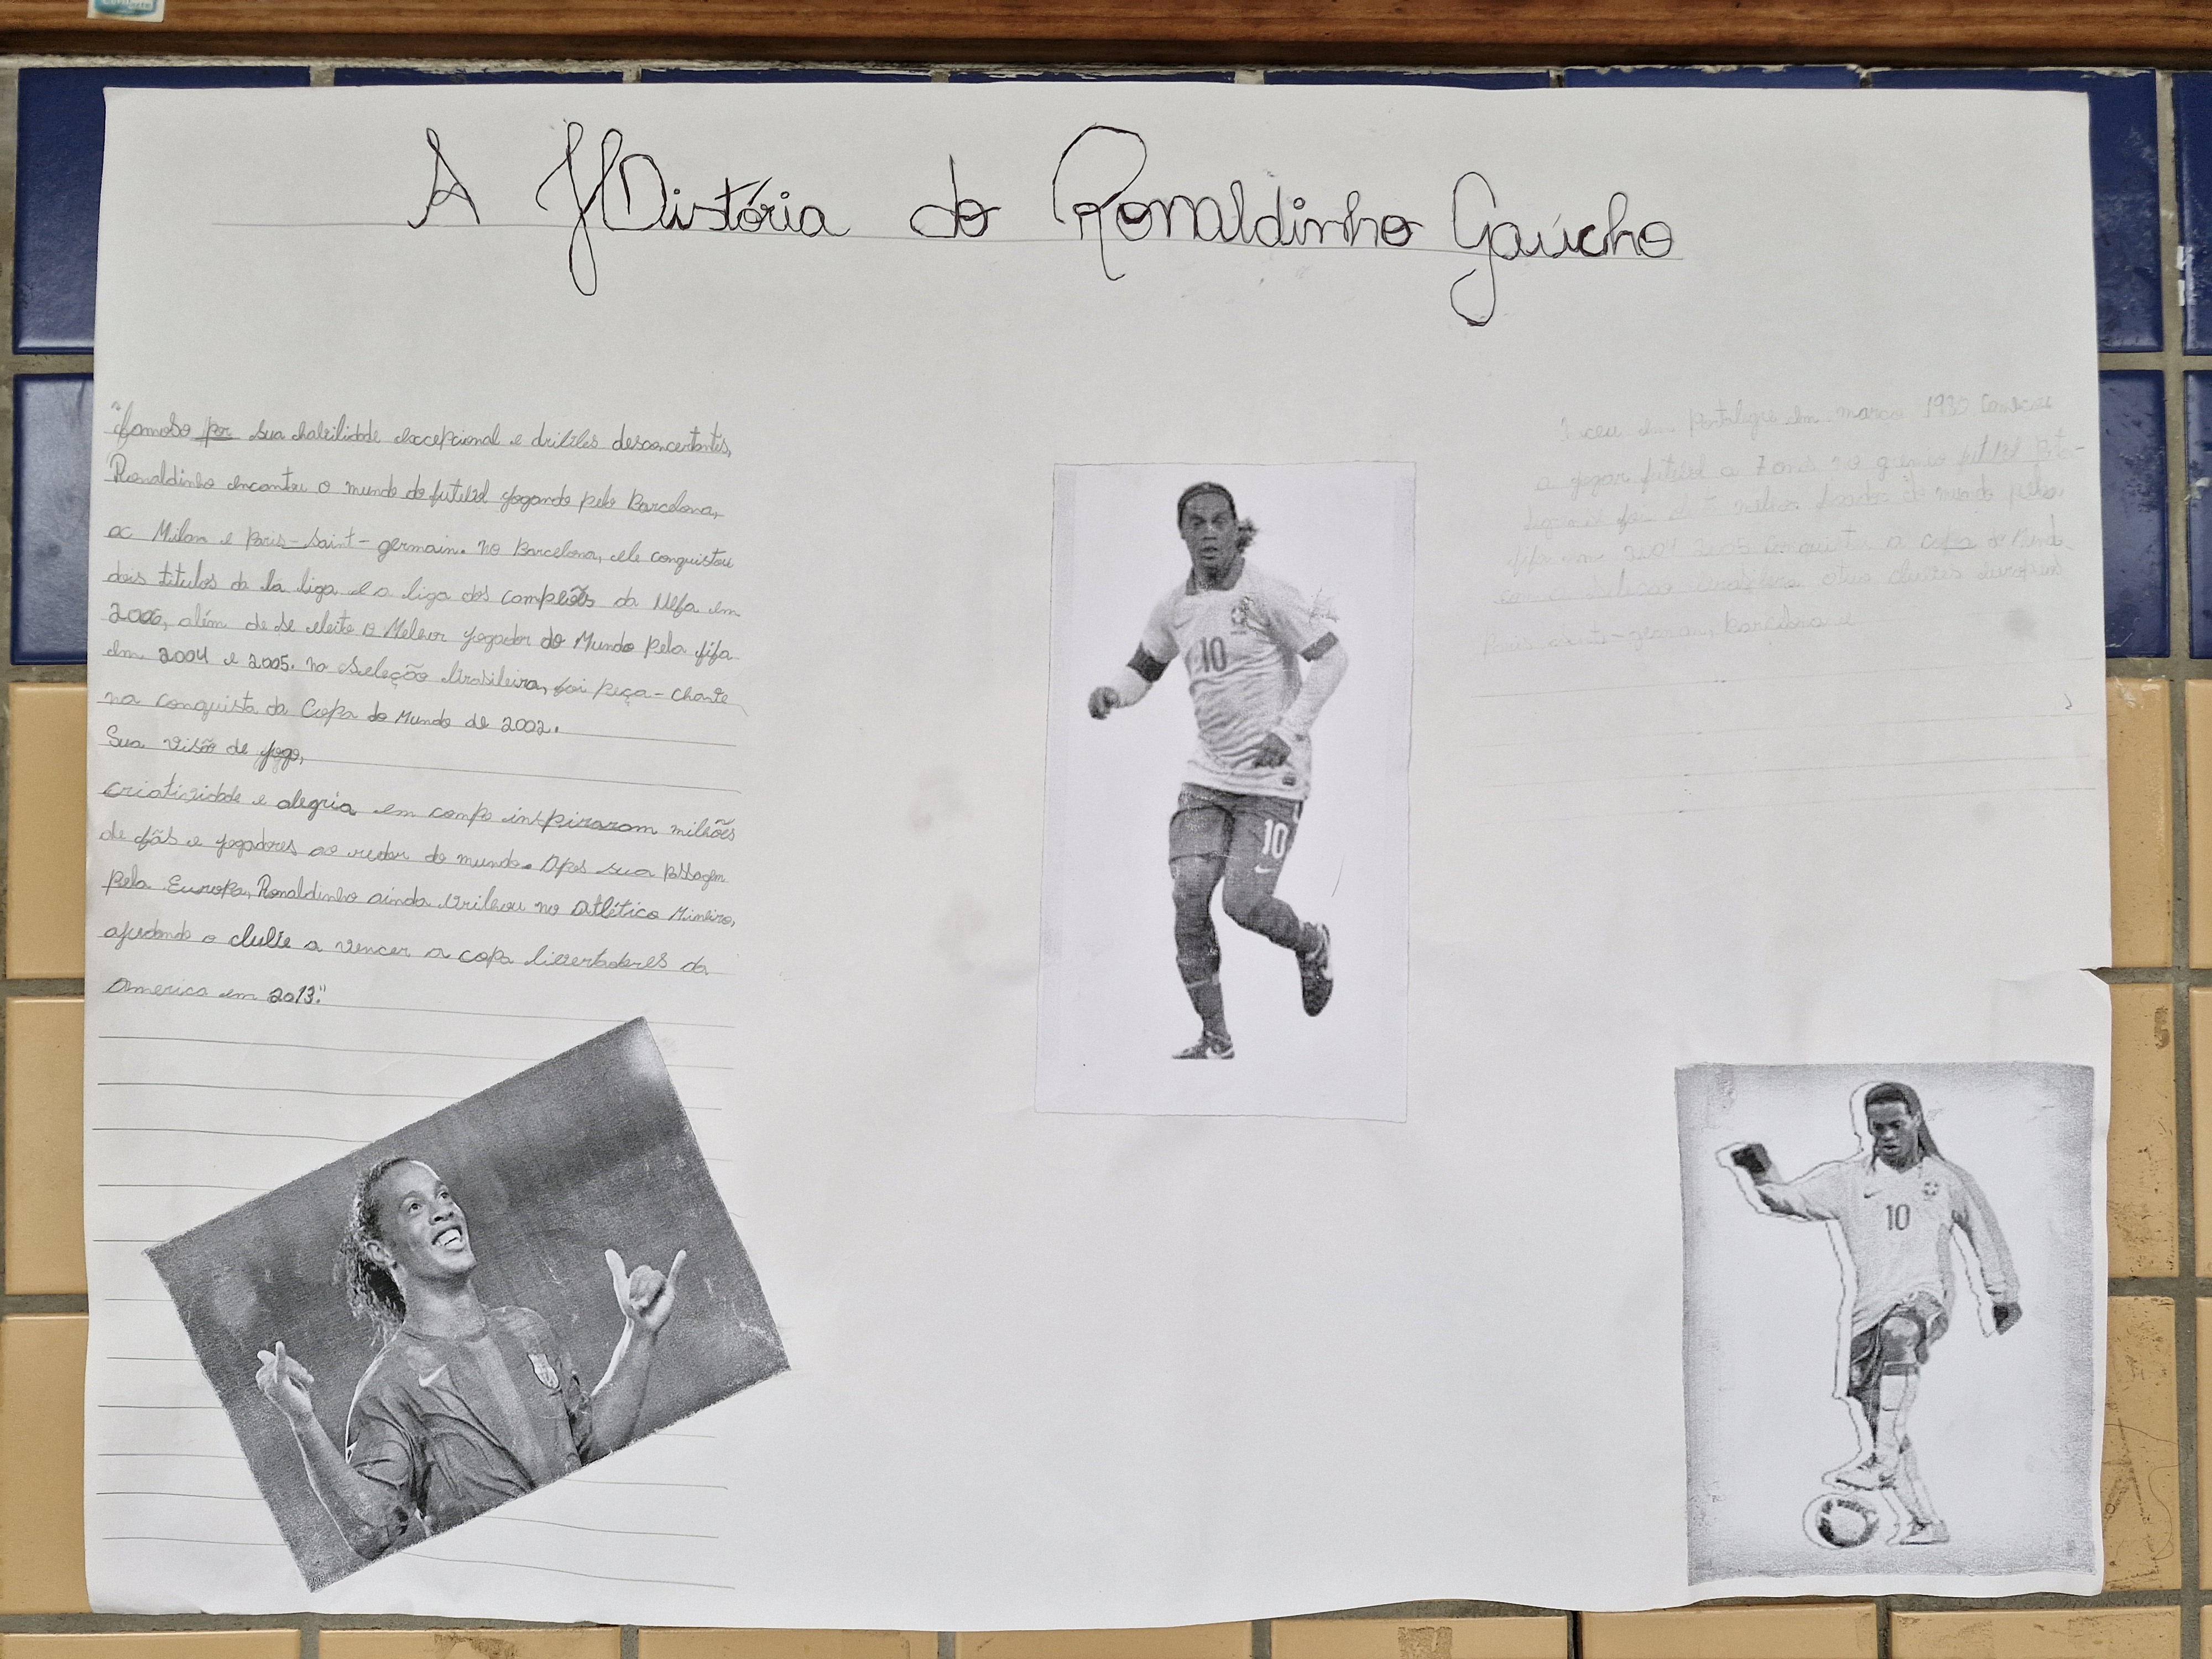 A História do Ronaldinho Gaúcho
"famoso por sua habilidade excepcional e dribles desconcertantes,
Ronaldinho encantou o mundo do futebol jogando pelo Barcelona,
ac Milan e Paris-Saint-germain. no Barcelona, ele conquistou
dois titulos da la liga e a liga dos campeões da Uefa em
2006, além de se eleito o Melhor jogador do Mundo pela fifa
em 2004 e 2005. na Seleção brasileira, foi peça-chave
na conquista da Copa do Mundo de 2002.
Sua visão de jogo,
criatividade e alegria em campo inspiraram milhões
de fãs e jogadores ao redor do mundo. Apos sua
pela Europa, Ronaldinho ainda brilhou no Atlético Mineiro,
ajudando o clube a vencer a copa libertadores da
America em 2013."
em março
a jogar futebol a 7 anos no
foi melhor do mundo pela
fifa em 2004 2005 a copa do
clubes
Paris barcelona e
10
10
10